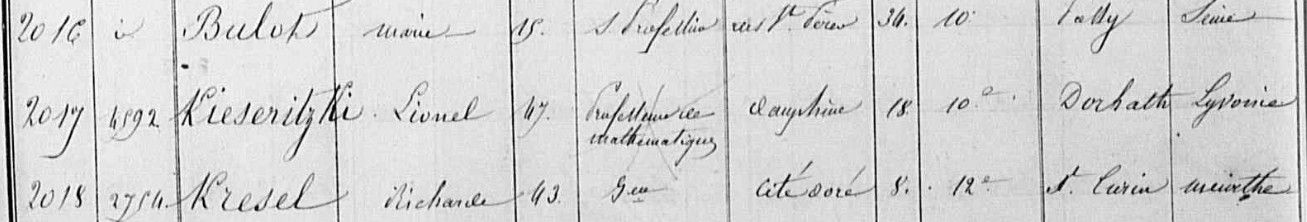 2016 id Bulot marie 15. s. Profession des Sts Pères 34. 10e Passy Seine
2017 4592 Kieseritzki Lionel 47. Professeur de mathematiques Dauphine 18. 10e Dorbath Lyvonie
2018 Kresel Richarde 43. Gen Cité Doré 8. 12e St meurthe